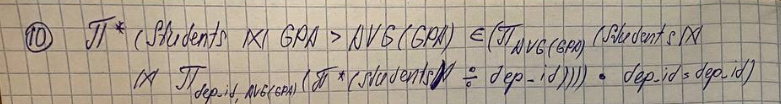 10 π* (Students ⋈ GPA > AVG(GPA) ∈ (π AVG(GPA) (Students ⋈
⋈ π dep_id, AVG(GPA) (π* (Students ÷ dep_id)))) • dep_id = dep_id)